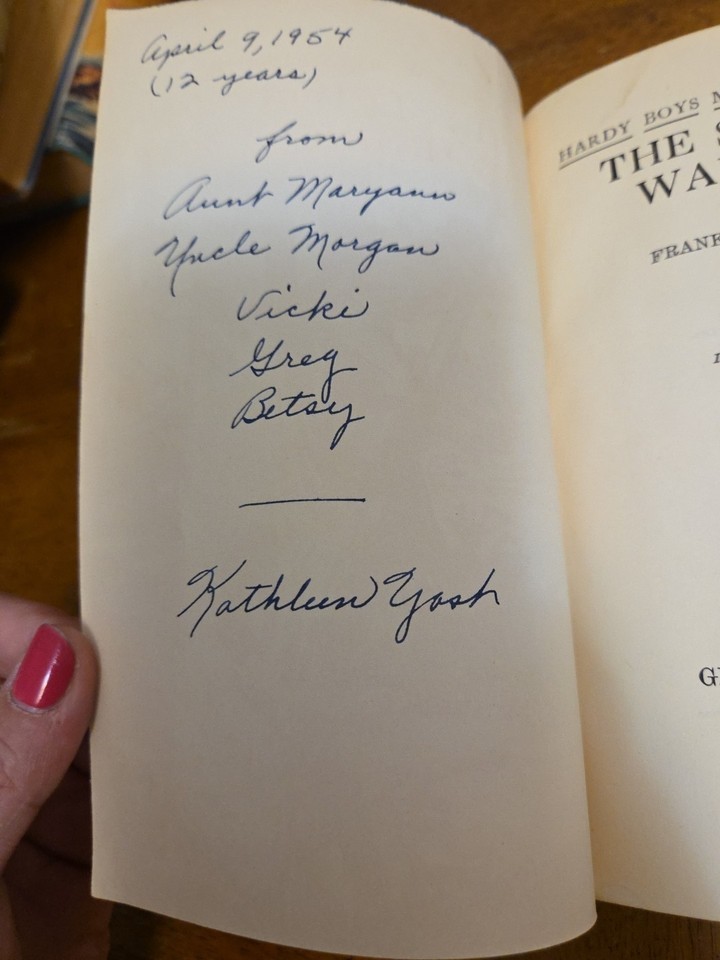 April 9, 1954
(12 years)
from
Aunt Maryann
Uncle Morgan
Vicki
Greg
Betsy
Kathleen Yosh
HARDY BOYS
THE
WA
FRANK